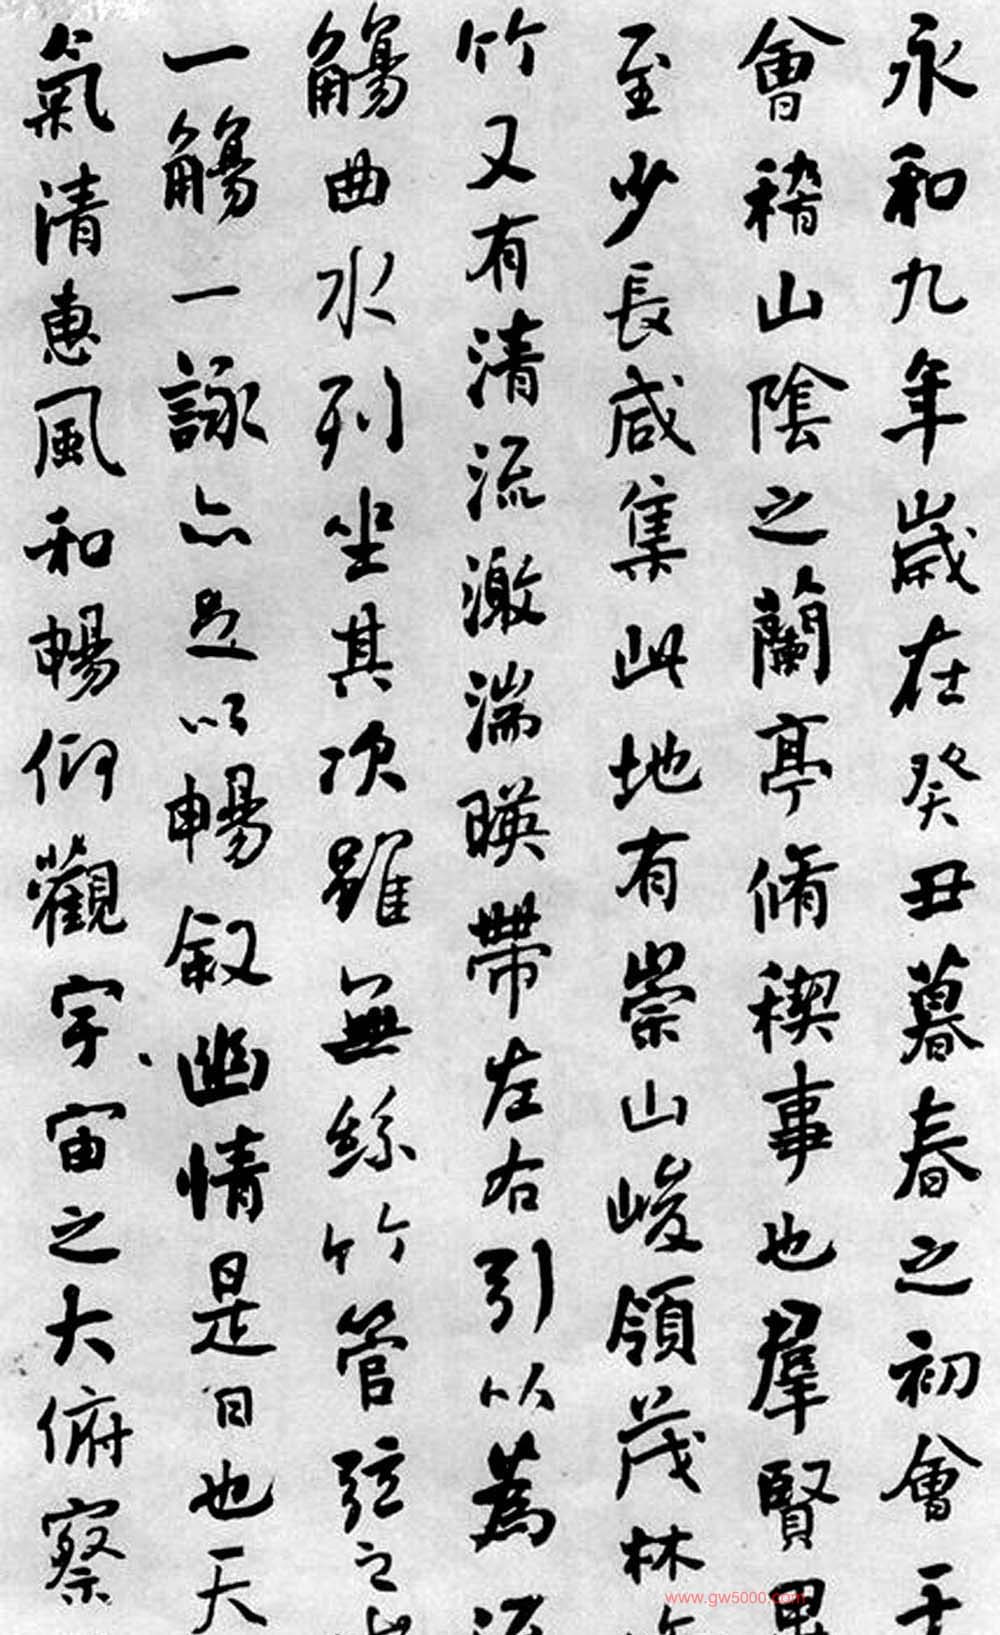 永和九年歲在癸丑暮春之初會于
會稽山陰之蘭亭脩稧事也羣賢畢
至少長咸集此地有崇山峻領茂林
竹又有清流激湍暎帶左右引以為流
觴曲水列坐其次雖無絲竹管弦之
一觴一詠亦足以暢叙幽情是日也天
氣清惠風和暢仰觀宇宙之大俯察
www.gw5000.com